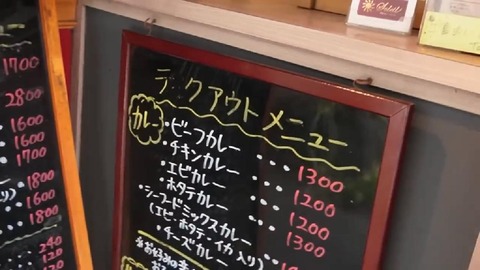 1700
2800
1600
1600
1700
1800
1600
1800
240
120
Soleil
テイクアウトメニュー
カレー
・ビーフカレー ・・・・ 1300
・チキンカレー ・・・ 1200
・エビカレー ・・・・ 1200
・ホタテカレー ・・・・ 1300
・シーフードミックスカレー
(エビ・ホタテ・イカ入り)
・チーズカレー